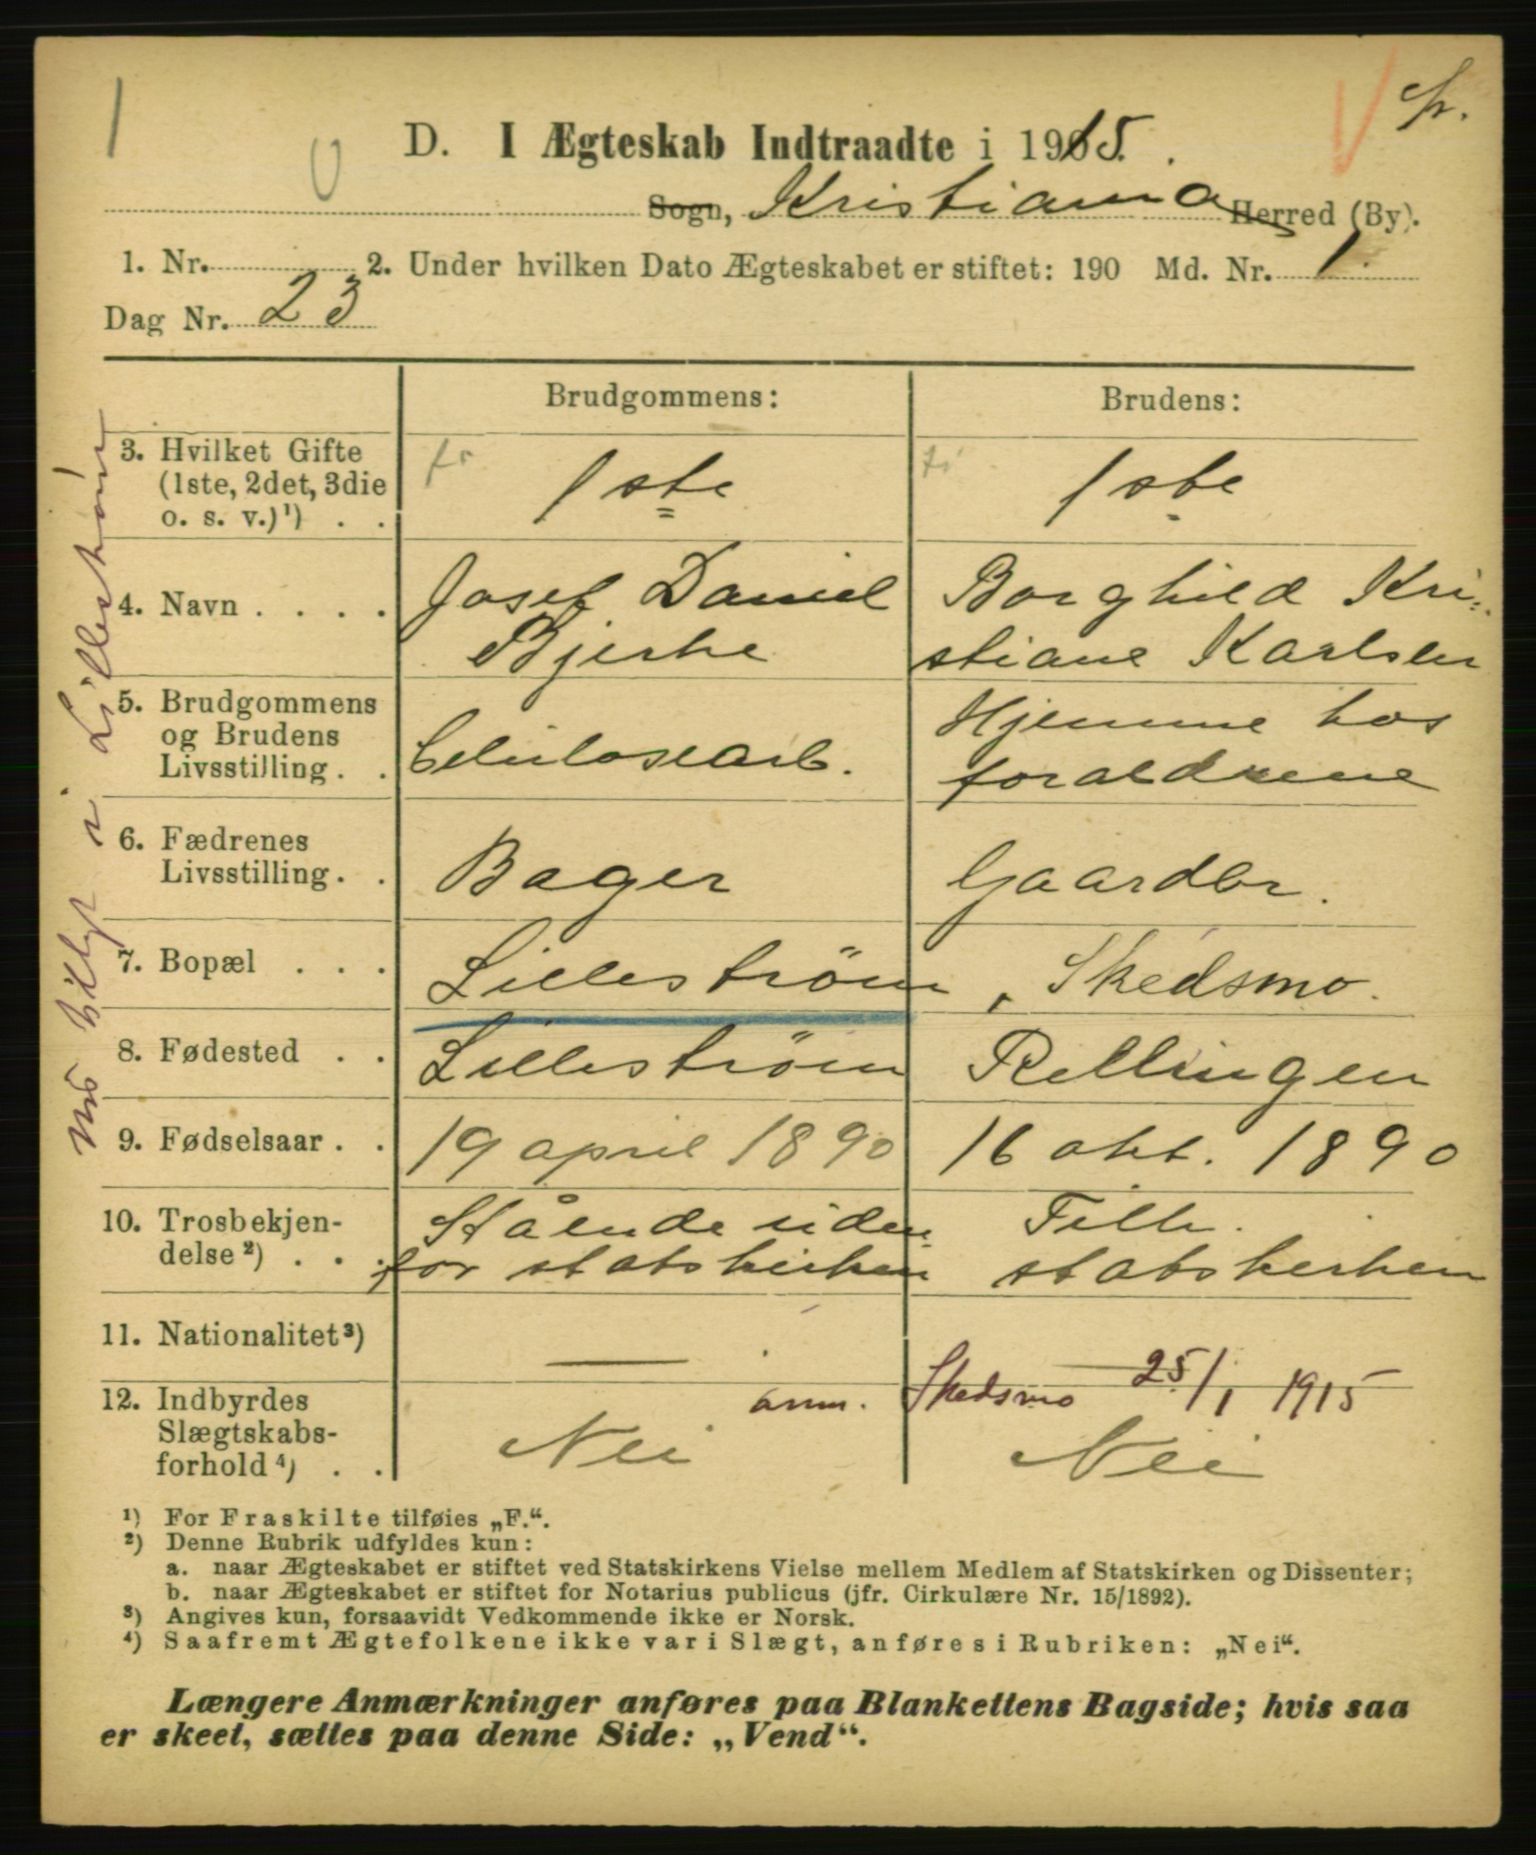 1
cfr.
D. I Ægteskab Indtraadte i 1915.
Sogn, Kristiania Herred (By).
1. Nr. 2. Under hvilken Dato Ægteskabet er stiftet: 190 Md. Nr. 1.
Dag Nr. 23
Brudgommens: Brudens:
3. Hvilket Gifte
(1ste, 2det, 3die
o. s. v.)¹) . .
1ste 1ste
4. Navn . . . .
Josef Daniel
Bjerke
Borghild Kri-
stiane Karlsen
5. Brudgommens
og Brudens
Livsstilling . .
Celulosearb.
Hjemme hos
foraldrene
6. Fædrenes
Livsstilling . .
Bager Gaardbr.
7. Bopæl . . .
Lilleström , Skedsmo.
8. Fødested . .
Lilleström Rellingen
9. Fødselsaar . .
19 april 1890 16 okt. 1890
10. Trosbekjen-
delse²) . . .
Stående uden-
for statskirken
Tilh.
statskirken
11. Nationalitet³)
anm. Skedsmo 25/1 1915
12. Indbyrdes
Slægtskabs-
forhold⁴) . .
Nei Nei
i Lilleström
¹) For Fraskilte tilføies „F.“.
²) Denne Rubrik udfyldes kun:
a. naar Ægteskabet er stiftet ved Statskirkens Vielse mellem Medlem af Statskirken og Dissenter;
b. naar Ægteskabet er stiftet for Notarius publicus (jfr. Cirkulære Nr. 15/1892).
³) Angives kun, forsaavidt Vedkommende ikke er Norsk.
⁴) Saafremt Ægtefolkene ikke var i Slægt, anføres i Rubriken: „Nei“.
Længere Anmærkninger anføres paa Blankettens Bagside; hvis saa
er skeet, sættes paa denne Side: „Vend“.